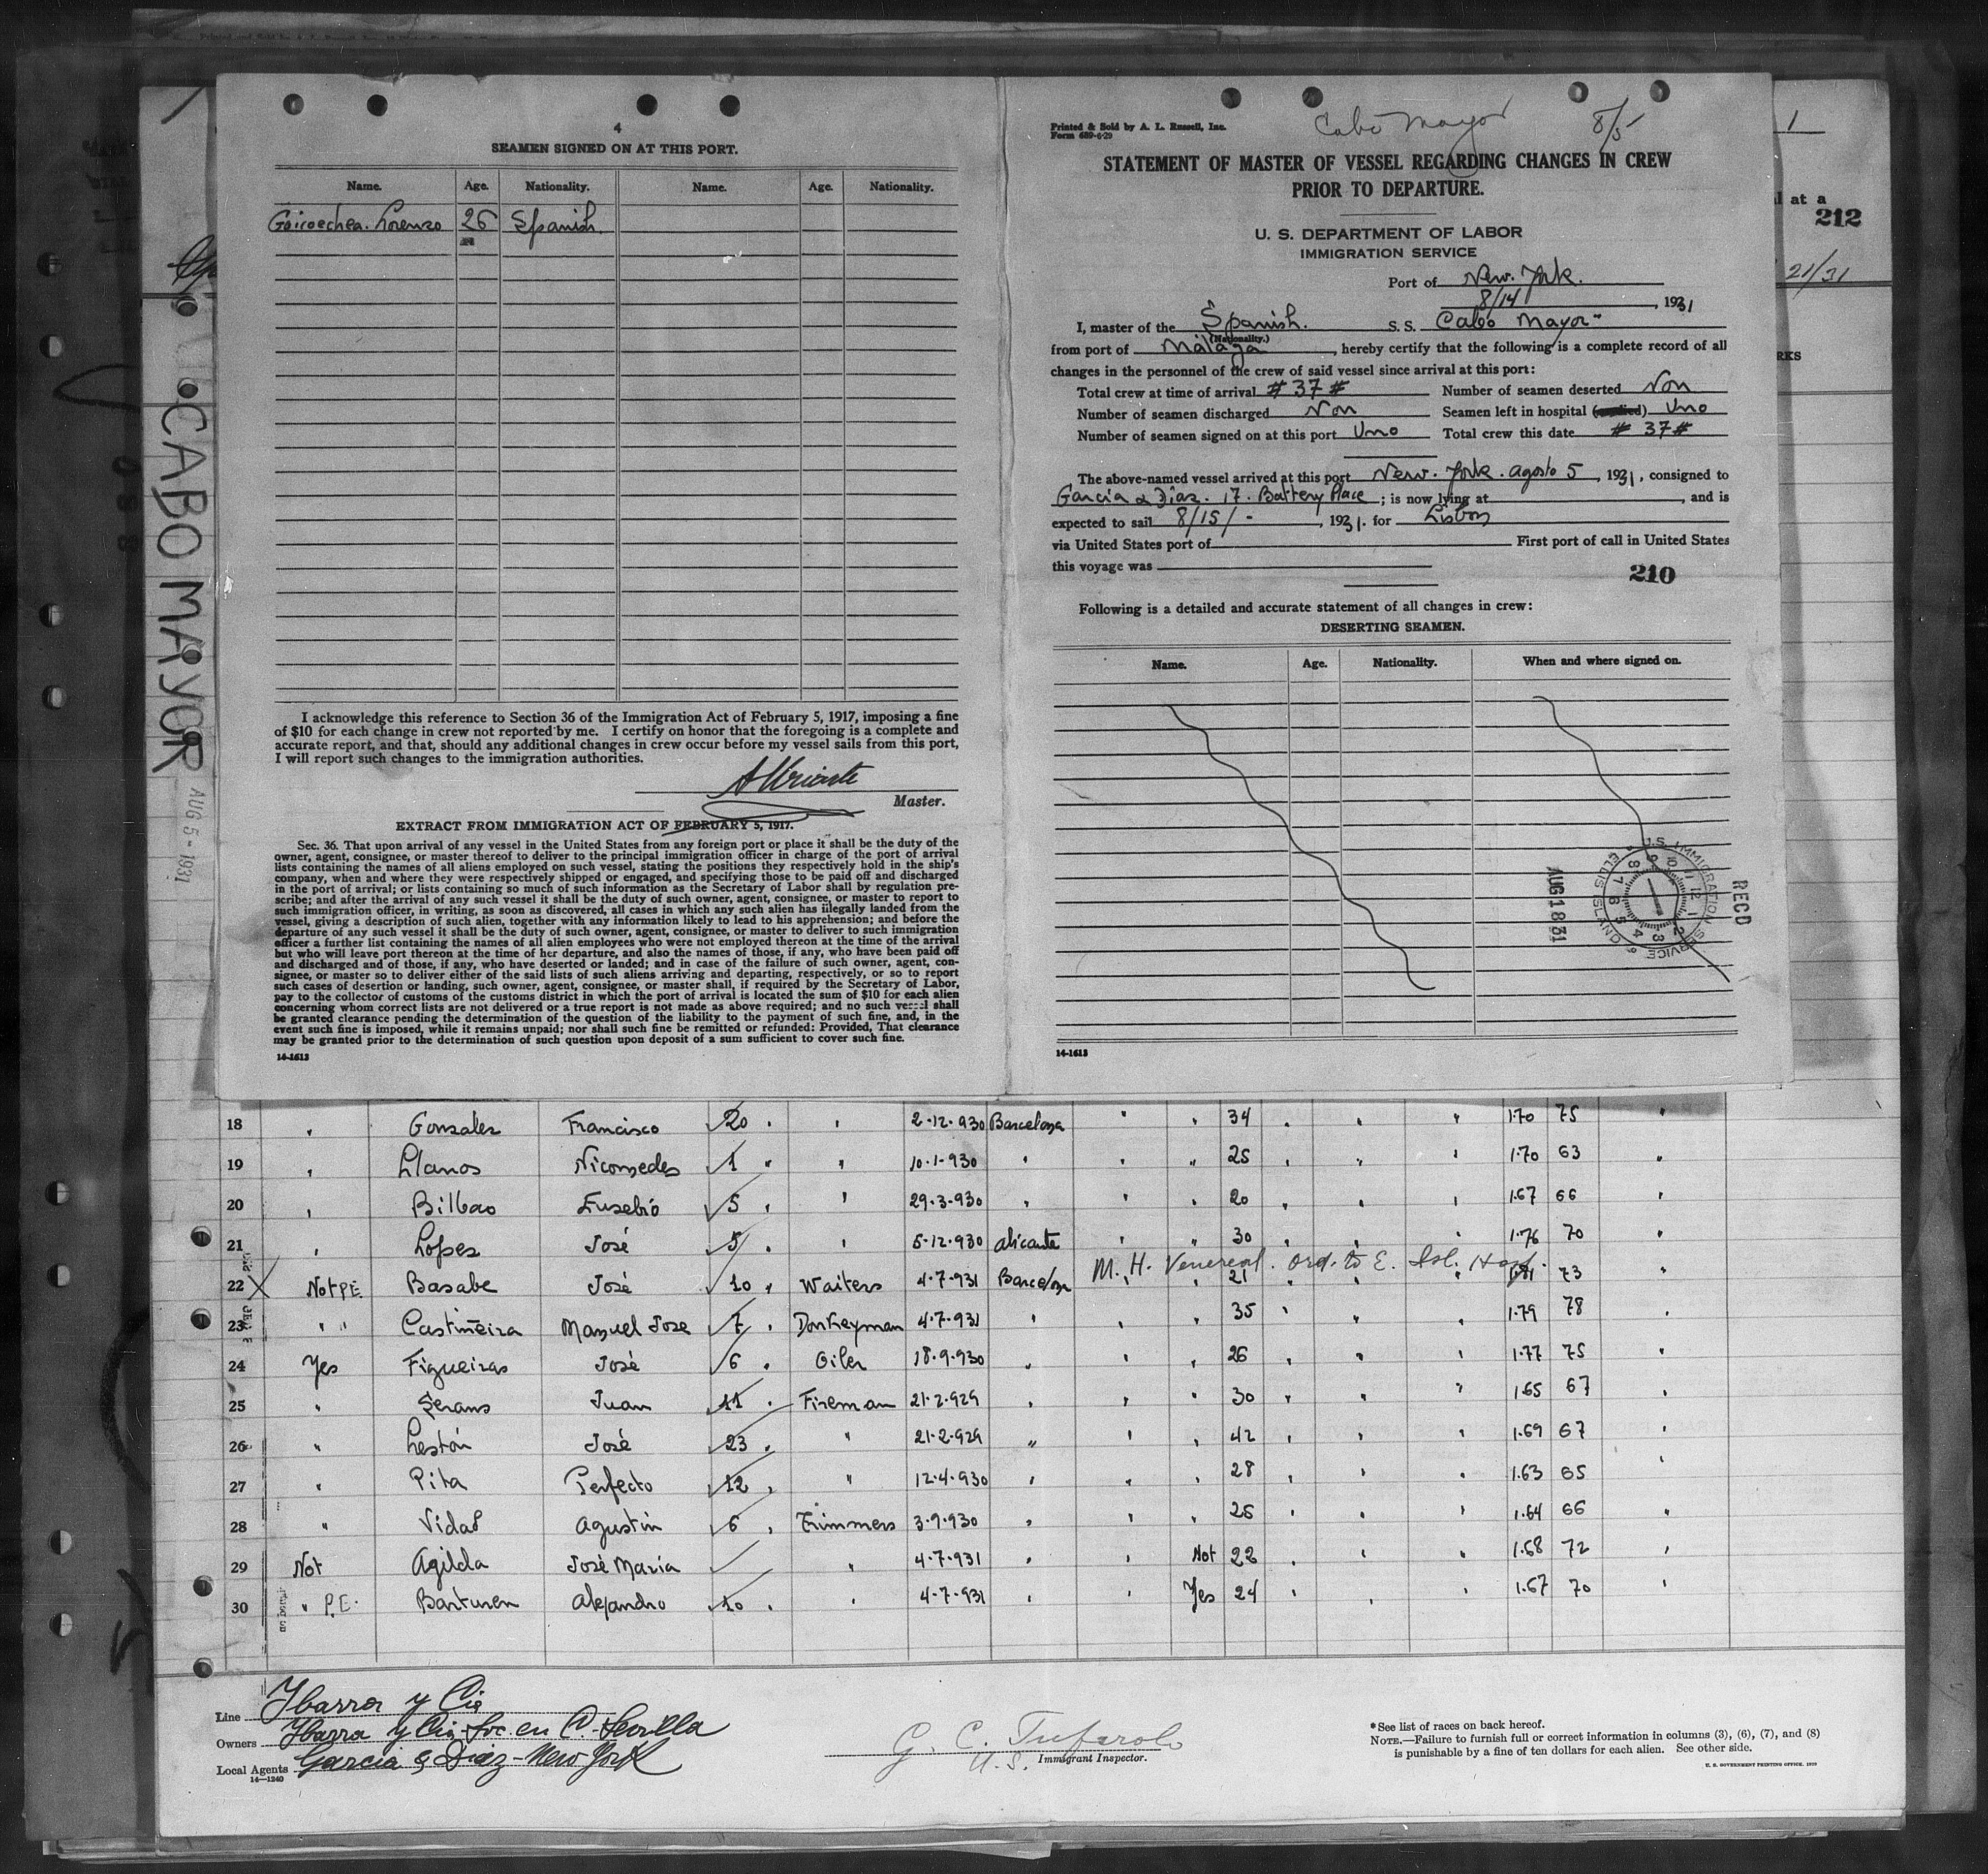 4
SEAMEN SIGNED ON AT THIS PORT.
Name. Age. Nationality. Name. Age. Nationality.
Goicoechea. Lorenzo 26 Spanish.
I acknowledge this reference to Section 36 of the Immigration Act of February 5, 1917, imposing a fine
of $10 for each change in crew not reported by me. I certify on honor that the foregoing is a complete and
accurate report, and that, should any additional changes in crew occur before my vessel sails from this port,
I will report such changes to the immigration authorities.
Master.
EXTRACT FROM IMMIGRATION ACT OF FEBRUARY 5, 1917.
Sec. 36. That upon arrival of any vessel in the United States from any foreign port or place it shall be the duty of the
owner, agent, consignee, or master thereof to deliver to the principal immigration officer in charge of the port of arrival
lists containing the names of all aliens employed on such vessel, stating the positions they respectively hold in the ship's
company, when and where they were respectively shipped or engaged, and specifying those to be paid off and discharged
in the port of arrival; or lists containing so much of such information as the Secretary of Labor shall by regulation pre-
scribe; and after the arrival of any such vessel it shall be the duty of such owner, agent, consignee, or master to report to
such immigration officer, in writing, as soon as discovered, all cases in which any such alien has illegally landed from the
vessel, giving a description of such alien, together with any information likely to lead to his apprehension; and before the
departure of any such vessel it shall be the duty of such owner, agent, consignee, or master to deliver to such immigration
officer a further list containing the names of all alien employees who were not employed thereon at the time of the arrival
but who will leave port thereon at the time of her departure, and also the names of those, if any, who have been paid off
and discharged and of those, if any, who have deserted or landed; and in case of the failure of such owner, agent, con-
signee, or master so to deliver either of the said lists of such aliens arriving and departing, respectively, or so to report
such cases of desertion or landing, such owner, agent, consignee, or master shall, if required by the Secretary of Labor,
pay to the collector of customs of the customs district in which the port of arrival is located the sum of $10 for each alien
concerning whom correct lists are not delivered or a true report is not made as above required; and no such vessel shall
be granted clearance pending the determination of the question of the liability to the payment of such fine, and, in the
event such fine is imposed, while it remains unpaid; nor shall such fine be remitted or refunded: Provided, That clearance
may be granted prior to the determination of such question upon deposit of a sum sufficient to cover such fine.
14-1613
Printed & Sold by A. L. Russell, Inc.
Form 689-6-29
Cabo Mayor 8/5
STATEMENT OF MASTER OF VESSEL REGARDING CHANGES IN CREW
PRIOR TO DEPARTURE.
U. S. DEPARTMENT OF LABOR
IMMIGRATION SERVICE
Port of New. York.
8/14, 1931
I, master of the Spanish. S. S. Cabo Mayor"
(Nationality.)
from port of Málaga, hereby certify that the following is a complete record of all
changes in the personnel of the crew of said vessel since arrival at this port:
Total crew at time of arrival # 37 # Number of seamen deserted Non
Number of seamen discharged Non Seamen left in hospital Uno
Number of seamen signed on at this port Uno Total crew this date # 37 #
The above-named vessel arrived at this port New. York. agosto 5, 1931, consigned to
Garcia & Diaz. 17. Battery Place; is now lying at , and is
expected to sail 8/15/-, 1931. for Lisbon
via United States port of First port of call in United States
this voyage was
210
Following is a detailed and accurate statement of all changes in crew:
DESERTING SEAMEN.
Name. Age. Nationality. When and where signed on.
U.S. IMMIGRATION SERVICE
ELLIS ISLAND
RECD
AUG 18 31
14-1613
1
l at a
212
21/31
RKS
CABO MAYOR
AUG 5 - 1931
18 " Gonzalez Francisco 20 " " 2-12-930 Barcelona " " 34 " " " 1.70 75 "
19 " Llanos Nicomedes 1 " " 10-1-930 " " " 25 " " " 1.70 63 "
20 " Bilbao Eusebio 5 " " 29-3-930 " " " 20 " " " 1.67 66 "
21 " Lopez José 5 " " 5-12-930 alicante " " 30 " " " 1.76 70 "
M. H. Venereal. Ord. to E. Isl. Hosp.
22 X Not P.E. Basabe José 10 " Waiters 4-7-931 Barcelona " " 21 " " " 73 "
23 " " Castiñeira Manuel Jose 7 " Donkeyman 4-7-931 " " 35 " " " 1.79 78 "
24 Yes Figueiras José 6 " Oiler 18-9-930 " " " 26 " " " 1.77 75 "
25 " Serans Juan 11 " Fireman 21-2-929 " " " 30 " " " 1.65 67 "
26 " Lestón José 23 " " 21-2-929 " " " 42 " " " 1.69 67 "
27 " Pita Perfecto 12 " " 12-4-930 " " " 28 " " " 1.63 65 "
28 " Vidal Agustin 6 " Trimmers 3-9-930 " " " 25 " " " 1.64 66 "
29 Not Agilda José Maria " 4-7-931 " " Not 22 " " " 1.68 72 "
30 " P.E. Barturen Alejandro 10 " " 4-7-931 " " Yes 24 " " " 1.67 70 "
Line Ybarra y Cia
Owners Ybarra y Cia Soc. en C. Sevilla
Local Agents Garcia & Diaz - New York
14-1240
G. C. Tufarolo
U.S. Immigrant Inspector.
*See list of races on back hereof.
NOTE.—Failure to furnish full or correct information in columns (3), (6), (7), and (8)
is punishable by a fine of ten dollars for each alien. See other side.
U. S. GOVERNMENT PRINTING OFFICE. 1930